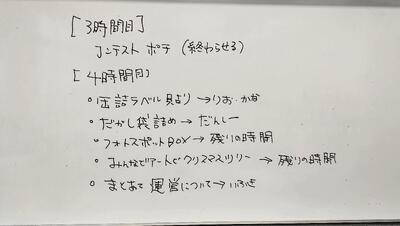 [3時間目]
コンテスト ポテ (終わらせる)
[4時間目]
○缶詰ラベル貼り→りお・かな
○だがし袋詰め→だんしー
○フォトスポットBOX→残りの時間
○みんなでアートでクリスマスツリー→残りの時間
○まとあて 運営について→いぶき